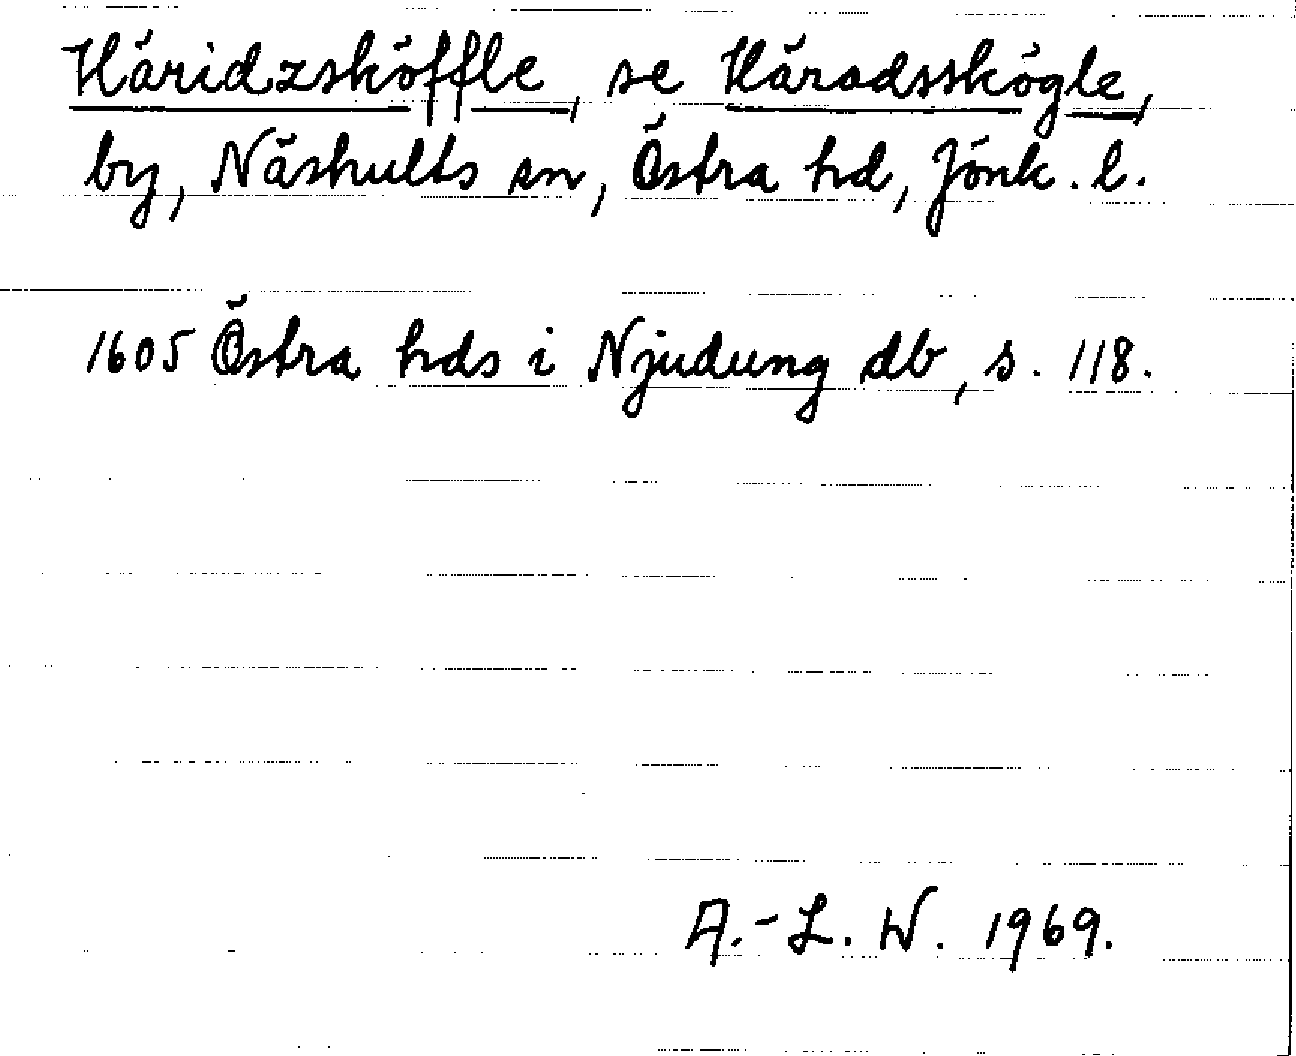 Häridzsköffle, se Häradsskögle,
by, Näshults sn, Östra hd, Jönk. l.
1605 Östra hds i Njudung db, s. 118.
A.-L. W. 1969.